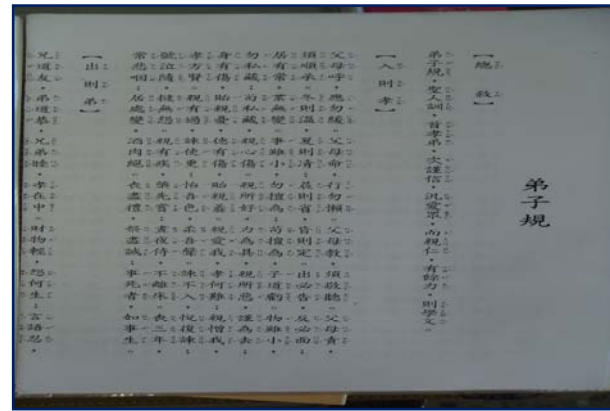 弟子規
【總敘】
弟子規，聖人訓，首孝弟，次謹信，汎愛眾，而親仁，有餘力，則學文。
【入則孝】
父母呼，應勿緩。父母命，行勿懶。父母教，須敬聽。父母責，
須順承。冬則溫，夏則凊。晨則省，昏則定。出必告，反必面。
居有常，業無變。事雖小，勿擅為。苟擅為，子道虧。物雖小，
勿私藏。苟私藏，親心傷。親所好，力為具。親所惡，謹為去。
身有傷，貽親憂。德有傷，貽親羞。親愛我，孝何難。親憎我，
孝方賢。親有過，諫使更。怡吾色，柔吾聲。諫不入，悅復諫。
號泣隨，撻無怨。親有疾，藥先嘗。晝夜侍，不離床。喪三年，
常悲咽。居處變，酒肉絕。喪盡禮，祭盡誠。事死者，如事生。
【出則弟】
兄道友，弟道恭。兄弟睦，孝在中。財物輕，怨何生。言語忍，